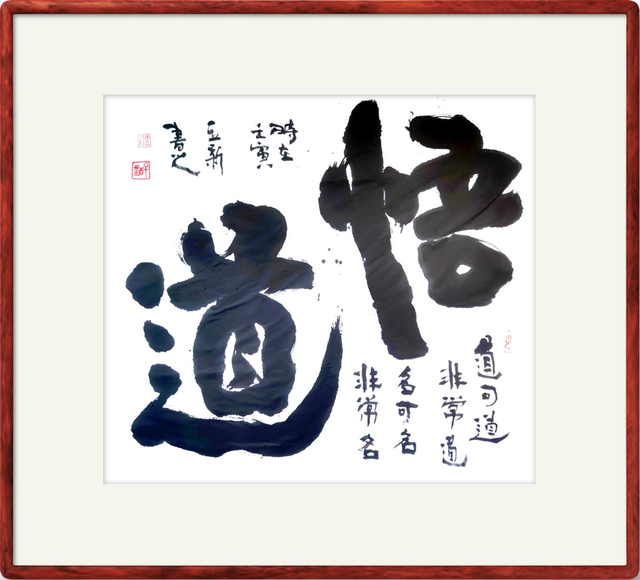 悟
道
道可道
非常道
名可名
非常名
時在
壬寅
新
書之